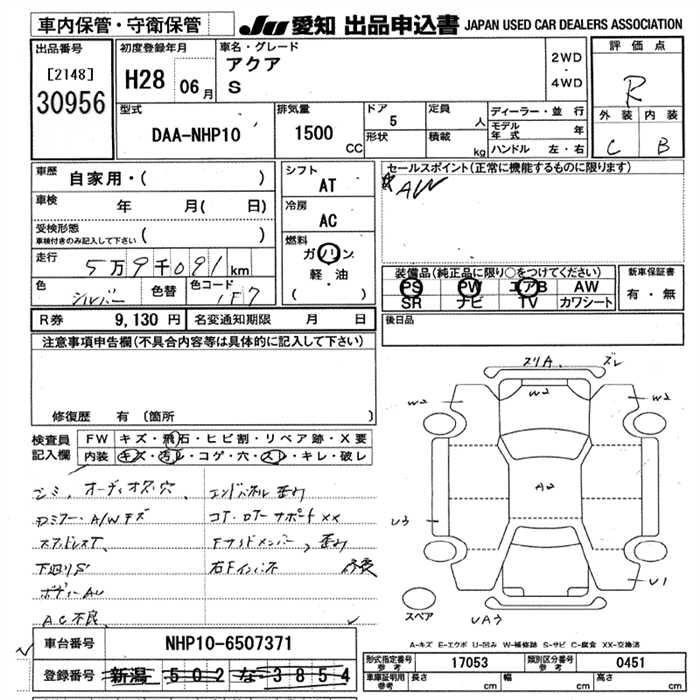 車内保管・守衛保管
JU 愛知 出品申込書 JAPAN USED CAR DEALERS ASSOCIATION
出品番号
[2148]
30956
初度登録年月
H28 06月
車名・グレード
アクア
S
2WD
・
4WD
評価点
R
外装 内装
C B
型式
DAA-NHP10
排気量
1500 CC
ドア
5
形状
定員
人
積載
kg
ディーラー・並行
モデル年式 年
ハンドル 左・右
車歴
自家用・( )
車検
年 月( 日)
受検形態
車検付きのみ記入して下さい
( )
走行
5万9千091km
色
シルバー
色替
色コード
1F7
シフト
AT
冷房
AC
燃料
ガソリン
軽・油
( )
セールスポイント(正常に機能するものに限ります)
AW
装備品(純正品に限り○をつけてください)
PS PW エアB AW
SR ナビ TV カワシート
新車保証書
有・無
後日品
R券 9,130円 名変通知期限 月 日
注意事項申告欄(不具合内容等は具体的に記入して下さい)
修復歴 有 (箇所
検査員
記入欄
FW キズ・飛石・ヒビ割・リペア跡・X要
内装 キズ・汚レ・コゲ・穴・スレ・キレ・破レ
ゴミ、オーディオス穴
ドアミラー・A/Wキズ
スタッドレスT、
下廻りS
ボディーAU
AC不良、
エンドパネル歪み
コア・ロアーサポートXX
Fサイドメンバー、歪み
右Fインパネ 修復
スリA. ズレ
W2
W2
W2
A2
U3
U1
UA3
スペア
A-キズ E-エクボ U-凹み W-補修跡 S-サビ C-腐食 XX-交換済
車台番号
NHP10-6507371
登録番号
新潟 502 な 3854
形式指定番号
参考
17053
類別区分番号
参考
0451
車庫証明用
参考
長さ cm
幅 cm
高さ cm